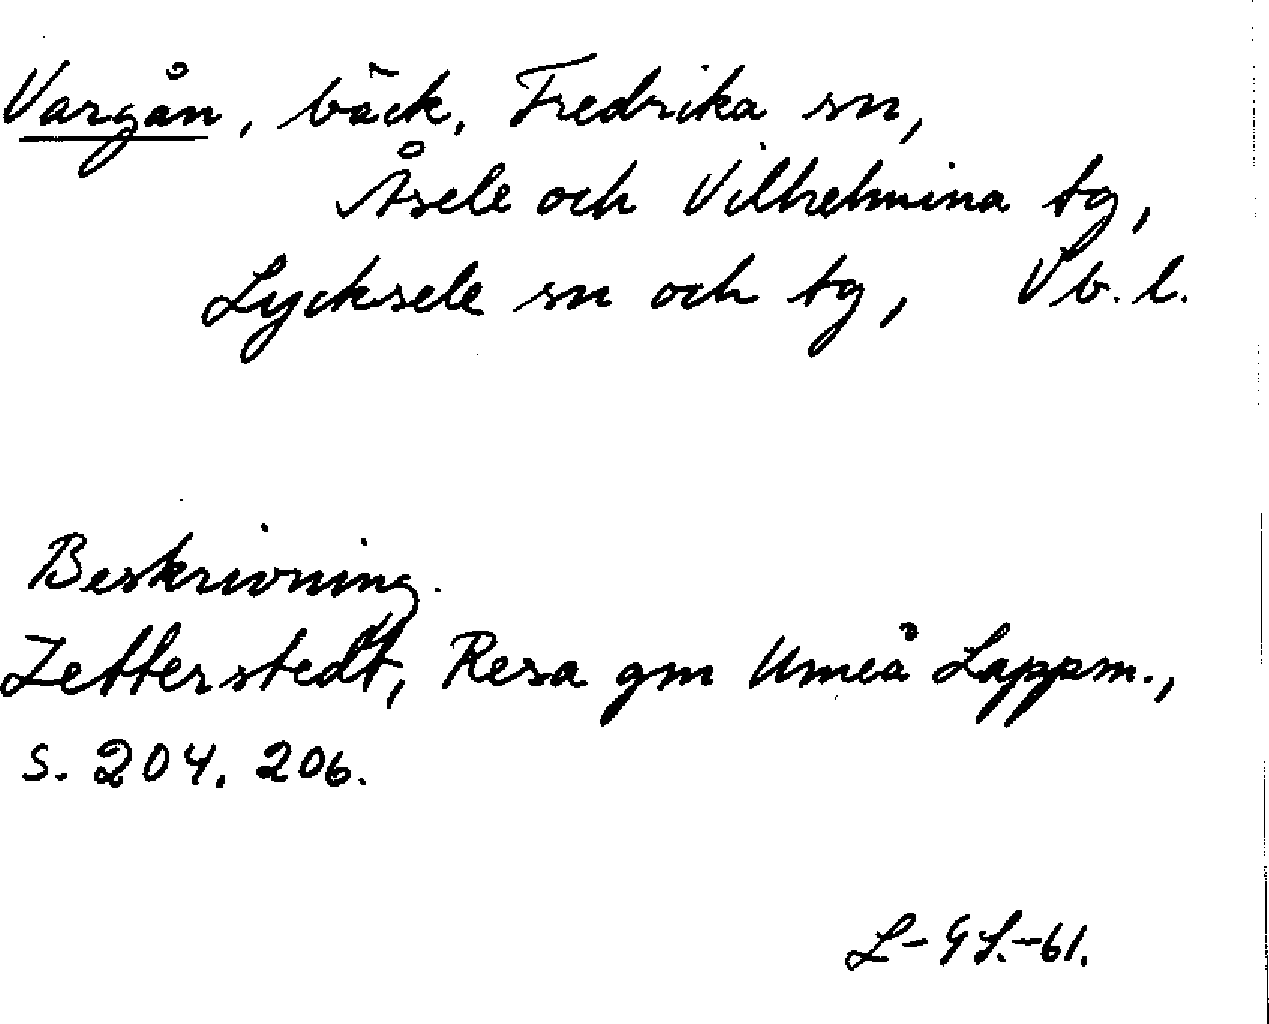 Vargån, bäck, Fredrika sn,
Åsele och Vilhelmina tg,
Lycksele sn och tg, Vb. l.
Beskrivning.
Zetterstedt, Resa gm Umeå Lappm.,
s. 204. 206.
L-GL.-61.